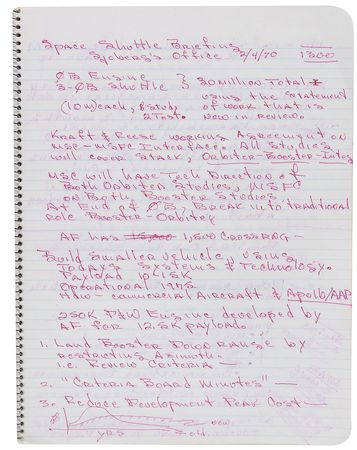 Space Shuttle Briefing
Sjoberg's Office 2/4/70 1300
ØB Engine
3-ØB Shuttle } 30 Million Total
using the statement
(10M) each, & study of work that is
2 Test. Now in review.
Kraft & Reese working agreement on
MSC-MSFC Interface. All Studies
will cover Stack, Orbiter-Booster-Integ
MSC will have Tech Direction of
Both Orbiter Studies, MSFC
on Both Booster Studies
At End of ØB, Break into traditional
role Booster-Orbiter
AF has 1,500 CROSSRNG -
Build smaller vehicle, using
Today's systems & Technology.
Payload 12.5K
Operational 1975
Hdw - commercial Aircraft & Apollo/AAP
250K P&W Engine developed by
AF for 12.5K payload.
1. Land Booster Down range by
restricting Azimuth.
i.e. Review Criteria -
2. "Criteria Board Minutes" -
3. Reduce Development Peak Cost -
new
yrs old